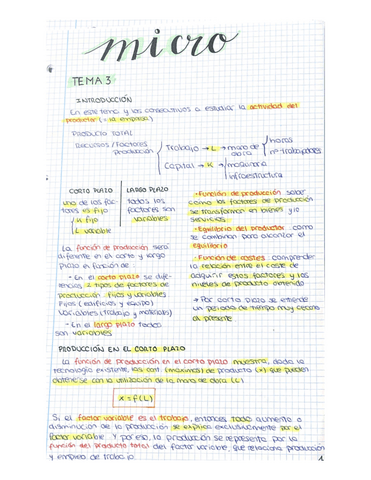 micro
TEMA 3
INTRODUCCIÓN
En este tema y los consecutivos a estudiar la actividad del
productor (= la empresa)
PRODUCTO TOTAL
RECURSOS / FACTORES
PRODUCCIÓN
Trabajo → L → mano de
obra
horas
nº trabajadores
Capital → K → maquinaria
infraestructura
CORTO PLAZO
uno de los fac-
tores es fijo
K fijo
L variable
LARGO PLAZO
todos los
factores son
variables
La función de producción será
diferente en el corto y largo
plazo en función de
- En el corto plazo se dife-
rencias 2 tipos de factores de
producción fijos y variables
Fijos (edificios y equipo)
variables (trabajo y materiales)
- En el largo plazo todos
son variables
- Función de producción: saber
como los factores de producción
se transforman en bienes y/o
servicios
- Equilibrio del productor: como
se combinan para alcanzar el
equilibrio
- Función de costes: comprender
la relación entre el coste de
adquirir estos factores y los
niveles de producto obtenido
→ Por corto plazo se entiende
un periodo de tiempo muy cercano
al presente
PRODUCCIÓN EN EL CORTO PLAZO
La función de producción en el corto plazo muestra, dada la
tecnología existente, las cant. (máximas) de producto (x) que pueden
obtenerse con la utilización de la mano de obra (L)
x = f(L)
Si el factor variable es el trabajo, entonces TODO aumento o
disminución de la producción se explica exclusivamente por el
factor variable. Y por eso, la producción se representa por la
función del producto total del factor variable, que relaciona producción
y empleo de trabajo
1